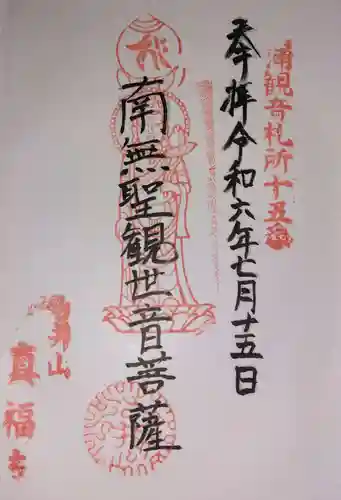 浦観音札所十五番
奉拝令和六年七月十五日
南無聖観世音菩薩
真福寺